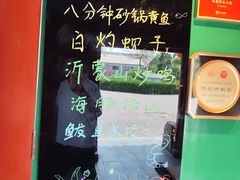 八分钟砂锅黄鱼
白灼蚬子
沂蒙山炒鸡
海肠捞饭
鲅鱼水饺